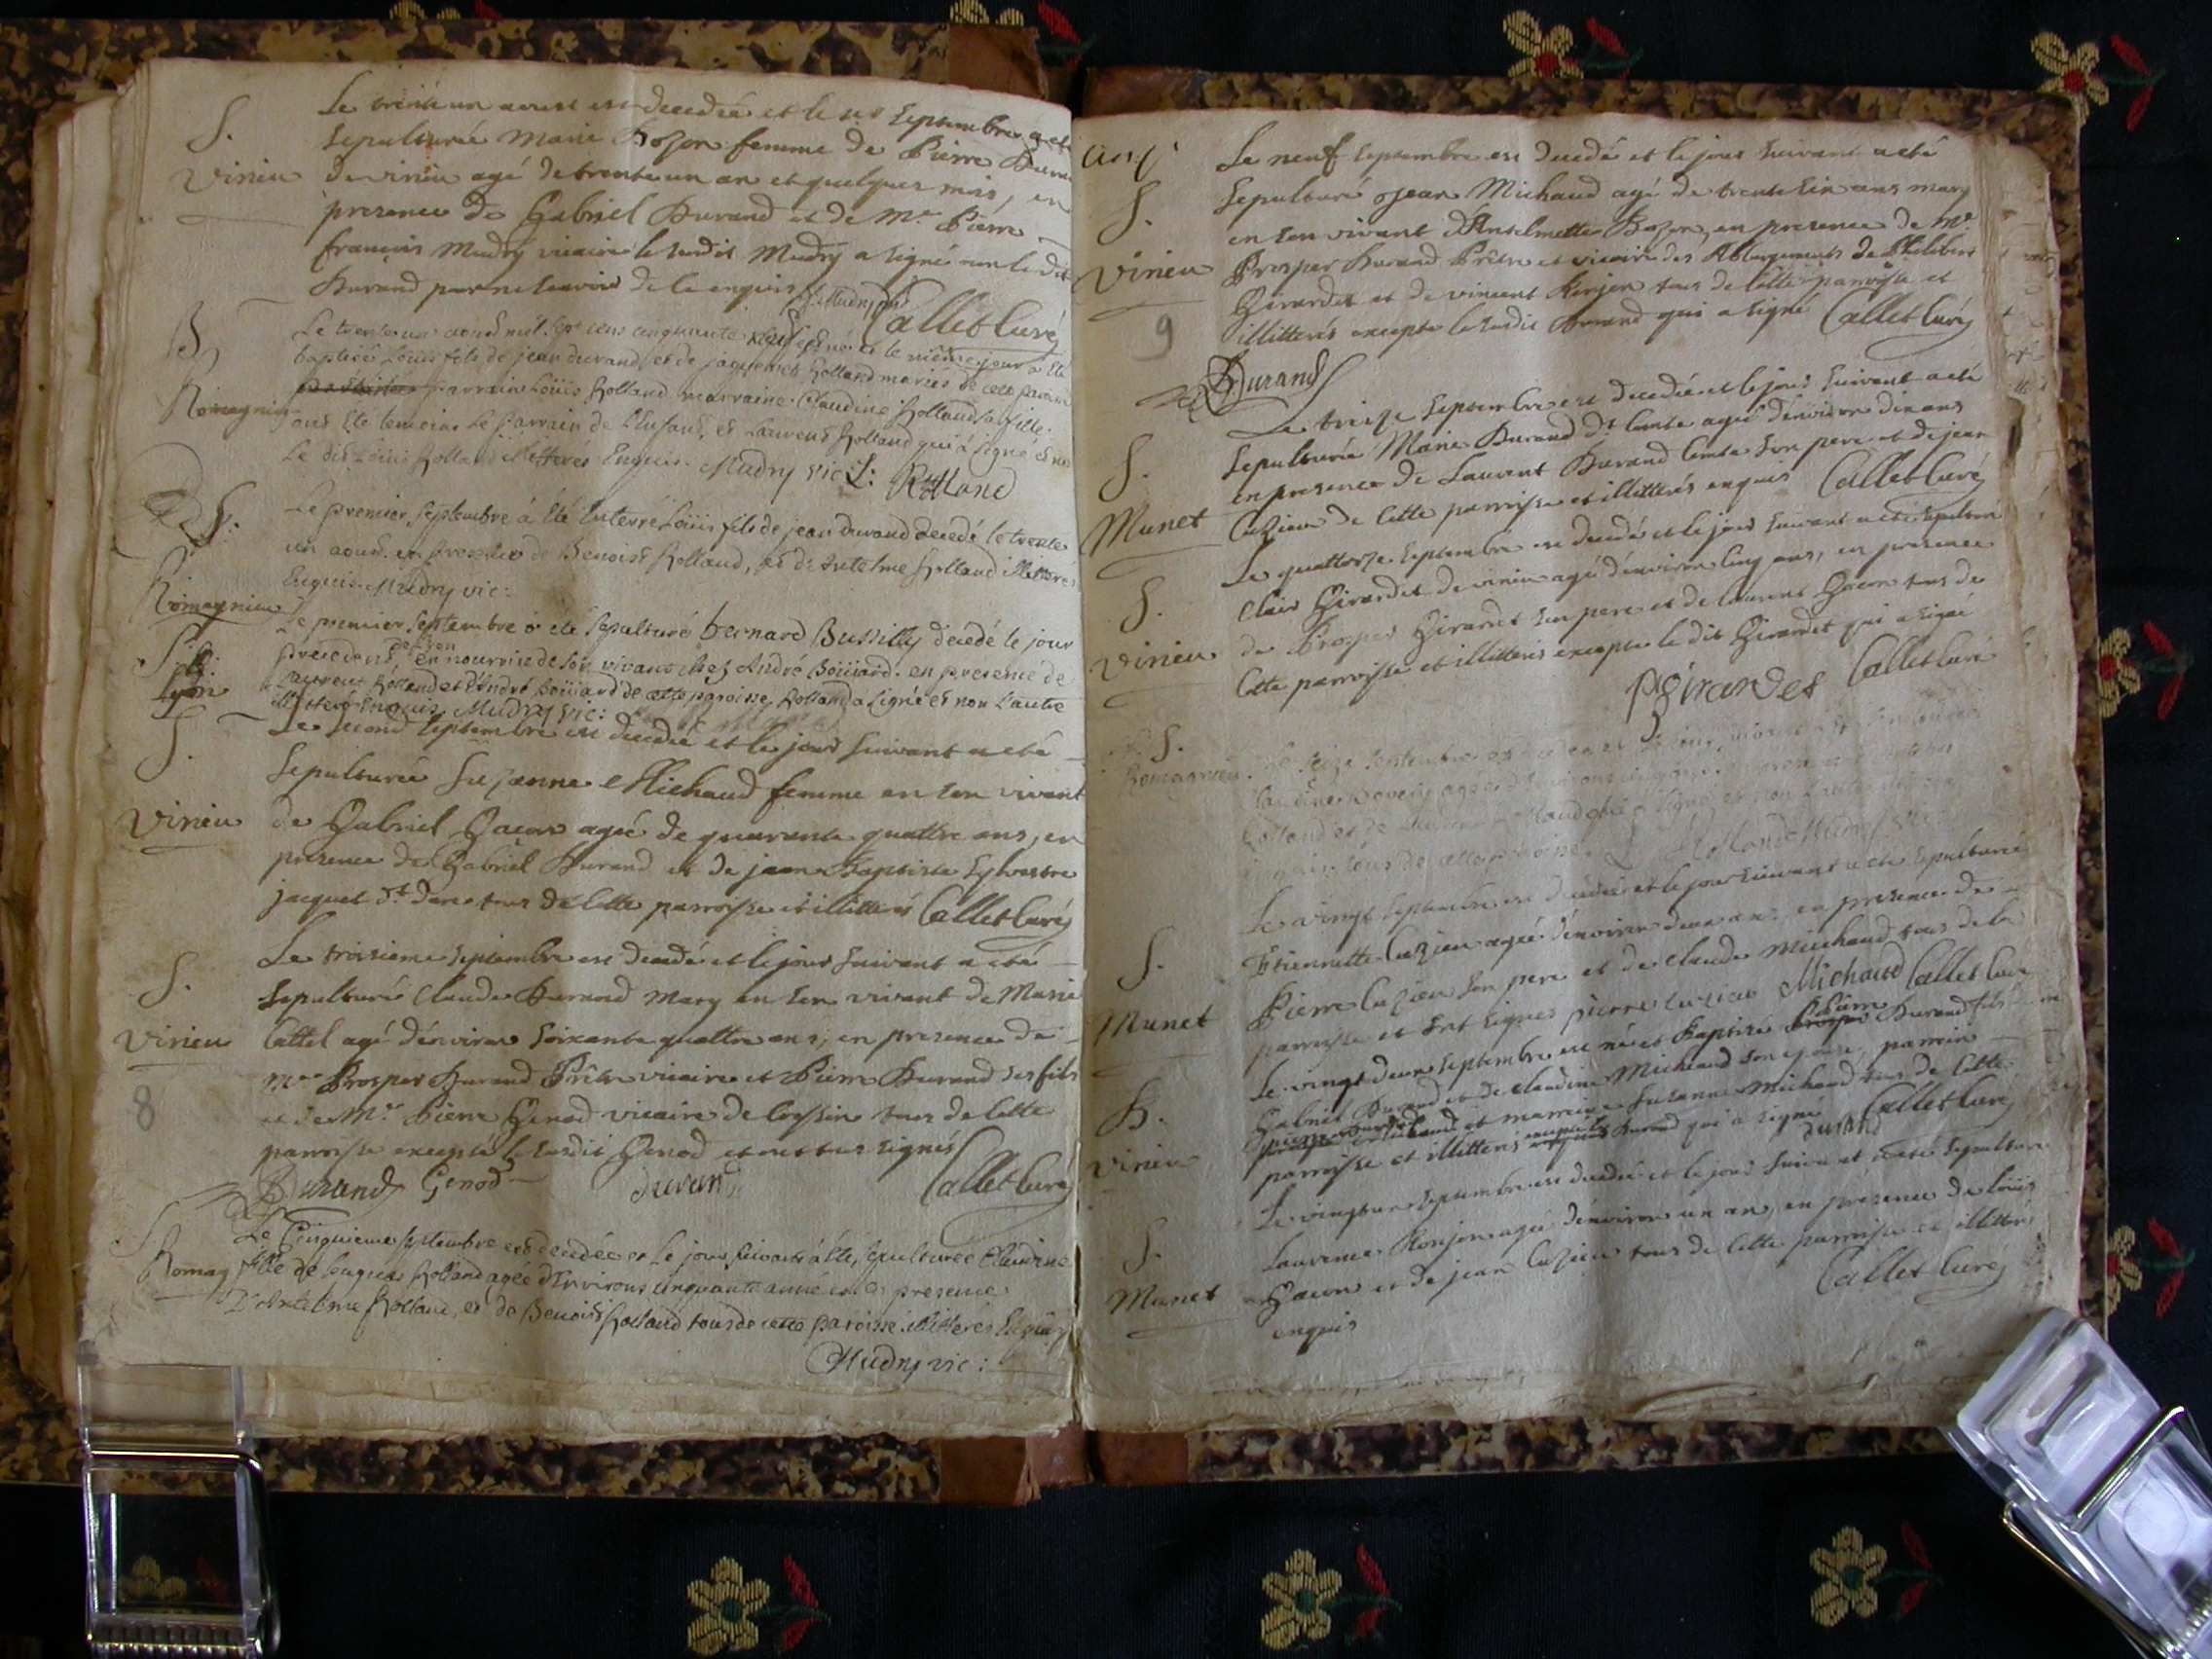 S.
Virieu
Le trente un aoust est decedée et le 1er Septembre a été
Sepulturée Marie Bozon femme de Pierre Durand
de virieu agé de trente un an et quelques mois, en
presence de Gabriel Durand et de Mre Pierre
françois Mudry vicaire le susdit Mudry a signé non le dit
Durand pour ne scavoir de ce enquis
Callet Curé
B.
Romagnieu
Le trente un aoust mil sept cens cinquante neuf est né et le même jour a été
baptisé Loüis fils de jean durand et de jaquemet Rolland mariés de cette paroisse
parrain Loüis Rolland marraine Claudine Rolland sa fille.
ont été temoins Le Parrain de l'Enfant, et Laurent Rolland qui a signé et non
Le dit Loüis Rolland illitteré Enquis. Mudry vic L: Rolland
S.
Romagnieu
Le premier Septembre à été Enterré Loüis fils de jean durand decedé le trente
un aoust en presence de Benoist Rolland, et d'Antelme Rolland illitterés
Enquis. Mudry vic:
S.
Lyon
Le premier Septembre à été sepulturé bernard Bussilly decedé le jour
precedent, en nourrice de son vivant chez André Boüiard. en presence de
Laurent Rolland et d'André Boüiard de cette paroisse, Rolland a signé et non l'autre
illitteré Enquis. Mudry vic:
S.
Virieu
Le second Septembre est decedée et le jour suivant a eté
Sepulturée Suzanne Michaud femme en son vivant
de Gabriel Gacon agée de quarante quattre ans, en
presence de Gabriel Durand et de jean Baptiste Sylvestre
jacquet dt dare tous de cette parroisse et illitterés Callet Curé
S.
Virieu
8
Le troisieme Septembre est decedé et le jour suivant a eté
Sepulturé Claude Durand mary en son vivant de Marie
Cattel agé d'environ soixante quattre ans, en presence de
Mre Prosper Durand Prêtre vicaire et Pierre Durand ses fils
et de Mr Pierre Genod vicaire de Cossin tous de cette
parroisse excepté le susdit Genod et ont tous signés
Durand Genod durand Callet Curé
S.
Romag
Le Cinquieme Septembre est decedée et Le jour suivant à été sepulturée Claudine
fille de hugues Rolland agée d'Environ cinquante année en presence
D'Antelme Rolland, et de Benoist Rolland tous de cette paroisse illitterés Enquis
Mudry vic:
S.
Virieu
9
Le neuf Septembre est decedé et le jour suivant a eté
Sepulturé Jean Michaud agé de trente six ans mary
en son vivant d'Anselmette Bozon, en presence de Mre
Prosper Durand Prêtre et vicaire des Abbergements de Philibert
Girardet et de vincent Kerjon tous de cette parroisse et
illitterés excepté le susdit Durand qui a signé Callet Curé
Durand
S.
Munet
Le treize Septembre est decedée et le jour suivant a eté
Sepulturée Marie Durand dt Comte agée d'environ dix ans
en presence de Laurent Durand Comte son pere et de jean
Cuzieu de cette parroisse et illitterés enquis Callet Curé
S.
Virieu
Le quattorze Septembre est decedé et le jour suivant a eté sepulturé
Clair Girardet de virieu agé d'environ cinq ans, en presence
de Prosper Girardet son pere et de Laurent Gacon tous de
cette parroisse et illitterés excepté le dit Girardet qui a signé
P Girardet Callet Curé
S.
Romagnieu
Le seize Septembre
Rolland
S.
Munet
Le vingt Septembre est decedée et le jour suivant a eté sepulturée
Etiennette Cuzieu agée d'environ deux ans, en presence de
Pierre Cuzieu son pere et de claude Michaud tous de la
parroisse et ont signés pierre cuzieu Michaud Callet Curé
B.
Virieu
Le vingt deux Septembre est né et Baptisé Pierre Durand fils
Gabriel Durand et de claudine Michaud son epouse, parrain
et marraine Suzanne Michaud tous de cette
parroisse et illitterés excepté Durand qui a signé Callet Curé
durand
S.
Munet
Le vingt un Septembre est decedée et le jour suivant a eté sepulturée
Laurence Konjon agée d'environ un an, en presence de Loüis
Gacon et de jean Cuzieu tous de cette parroisse et illitterés
enquis
Callet Curé